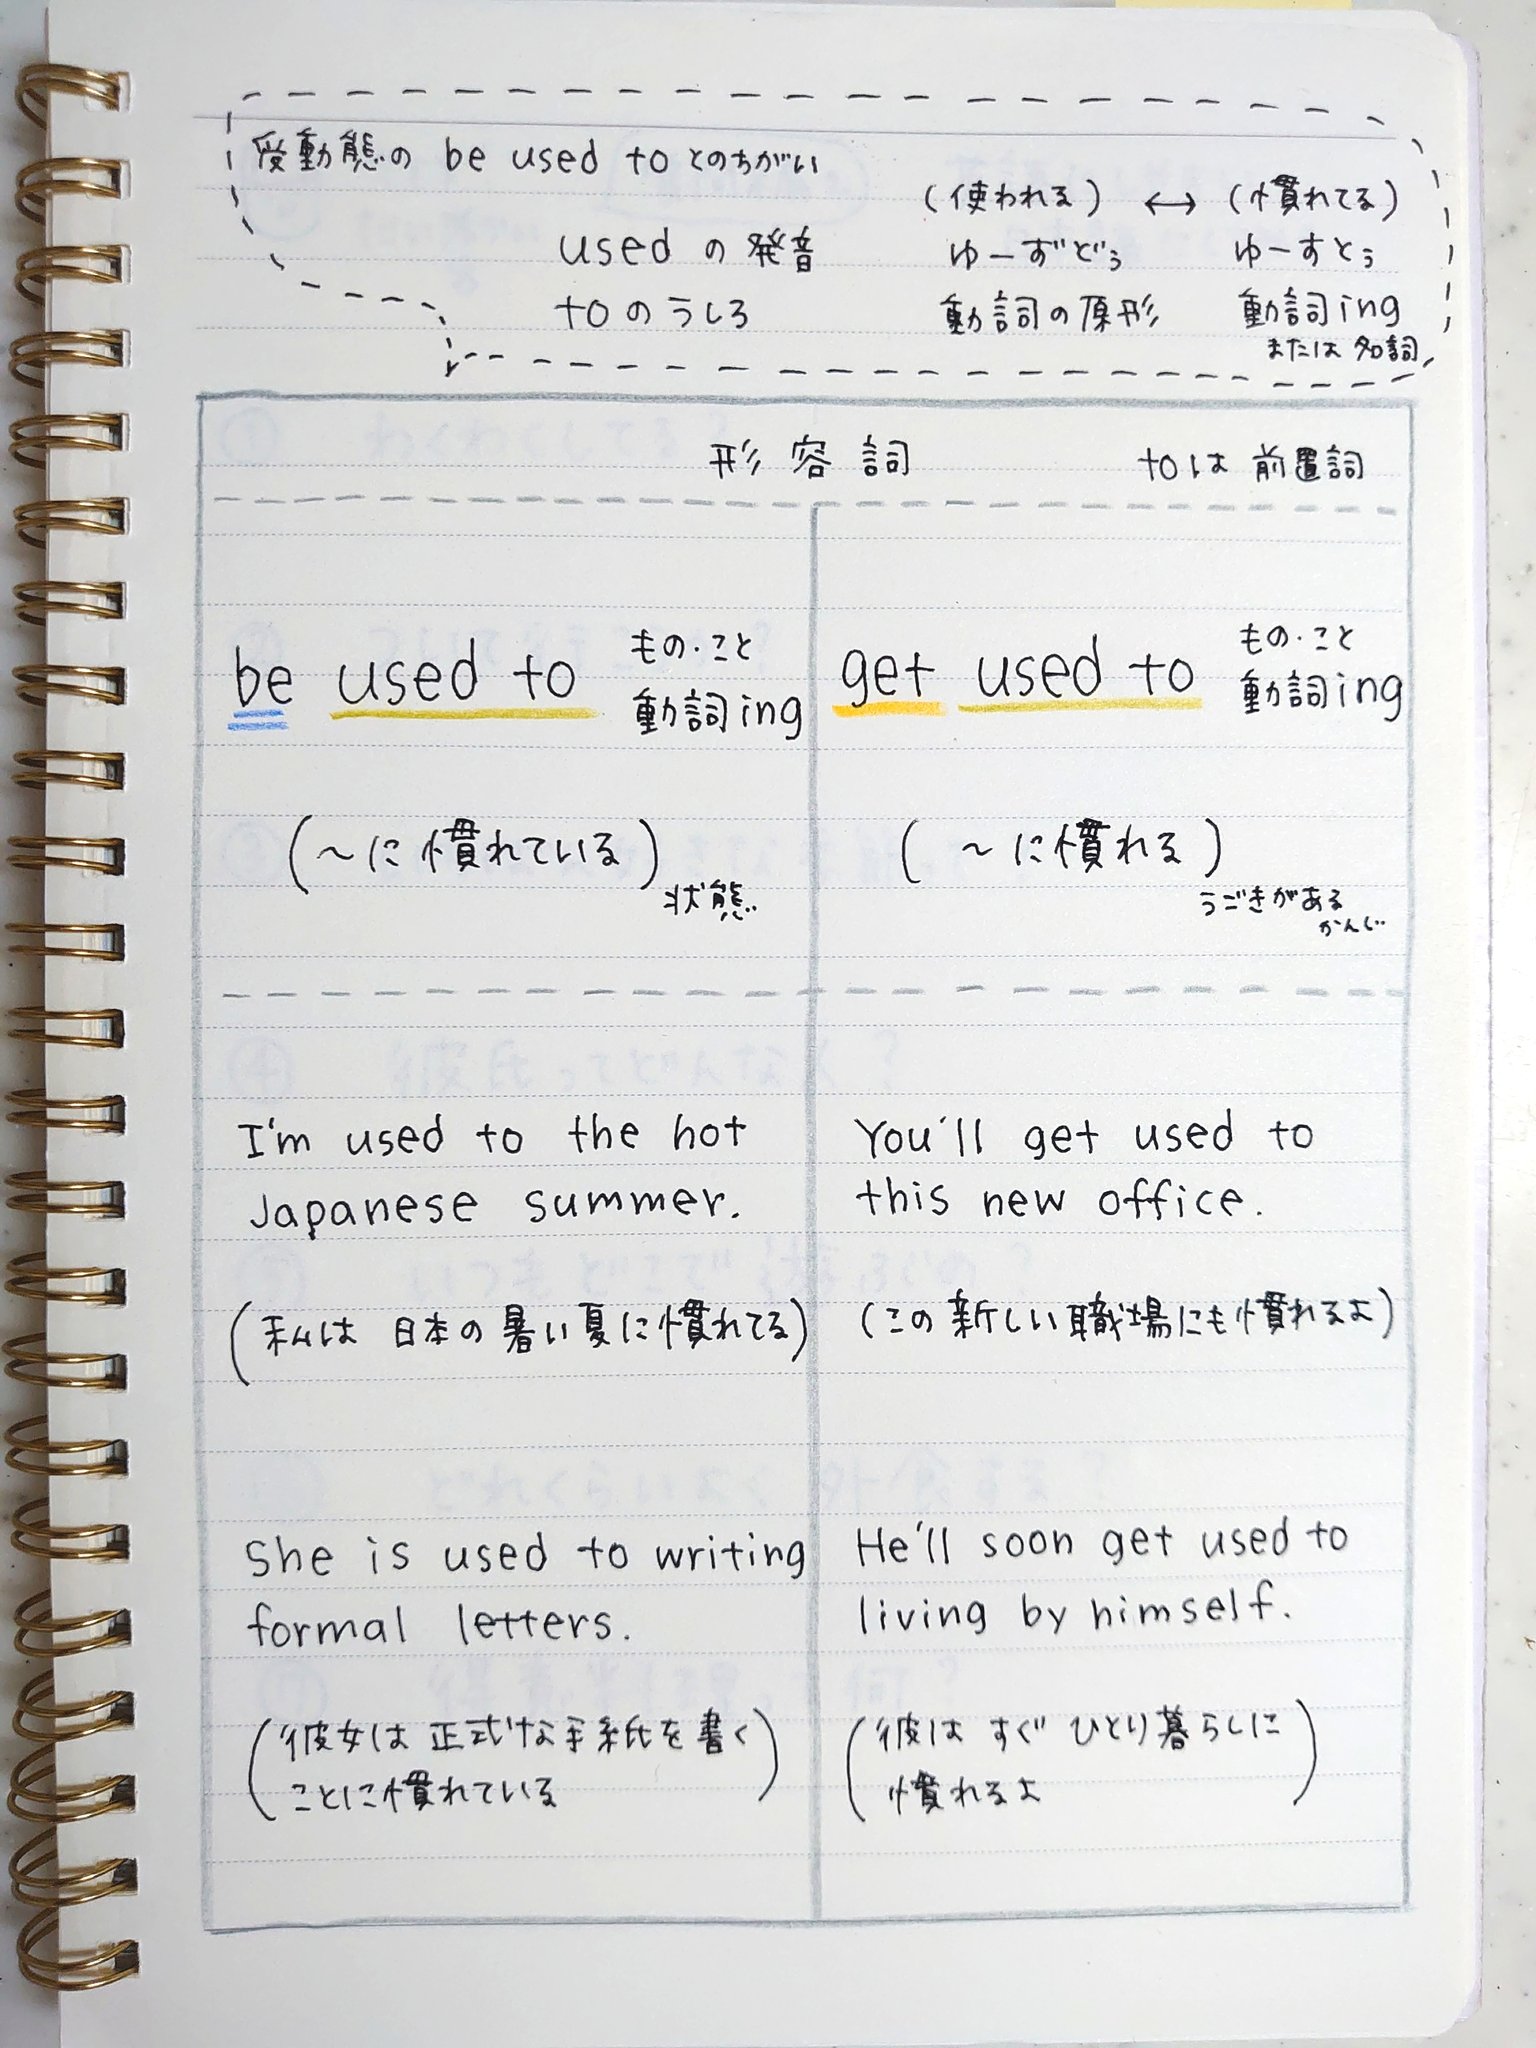 受動態の be used to とのちがい
(使われる) ↔ (慣れてる)
used の発音 ゆーずどぅ ゆーすとぅ
to のうしろ 動詞の原形 動詞ing
または 名詞
形容詞 toは 前置詞
be used to もの・こと
動詞ing
(～に慣れている)
状態
get used to もの・こと
動詞ing
(～に慣れる)
うごきがある
かんじ
I'm used to the hot
Japanese summer.
(私は 日本の暑い夏に慣れてる)
You'll get used to
this new office.
(この新しい職場にも慣れるよ)
She is used to writing
formal letters.
(彼女は正式な手紙を書く
ことに慣れている)
He'll soon get used to
living by himself.
(彼は すぐ ひとり暮らしに
慣れるよ)